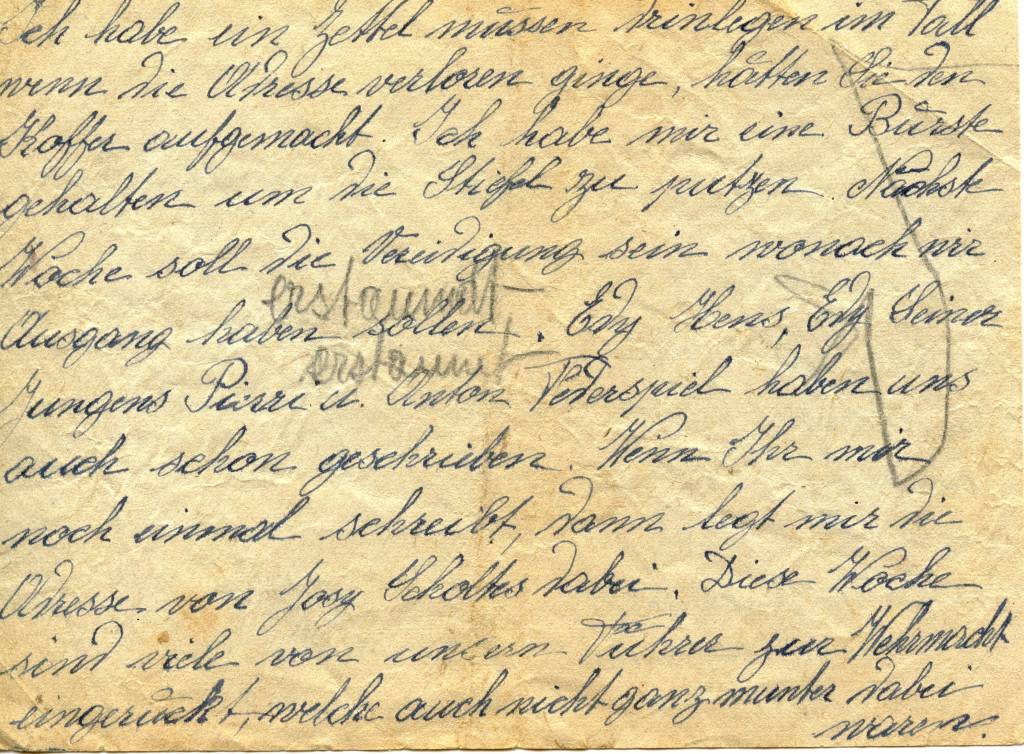 Ich habe ein Zettel müssen drinlegen im Fall
wenn die Adresse verloren ginge, hätten Sie den
Koffer aufgemacht. Ich habe mir eine Bürste
gehalten um die Stiefel zu putzen. Nächste
Woche soll die Vereidigung sein wonach wir
erstaunt
Ausgang haben sollen. Edy Hens, Edy Seiner
erstaunt
Jungens Pierri u. Anton Pederspiel haben uns
auch schon geschrieben. Wenn Ihr mir
noch einmal schreibt, dann legt mir die
Adresse von Josy Scholtes dabei. Diese Woche
sind viele von unsern Führer zur Wehrmacht
eingerückt, welche auch nicht ganz munter dabei
waren.